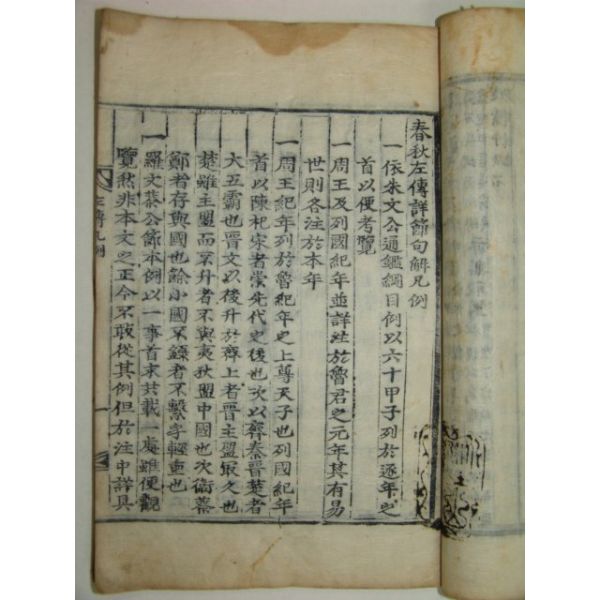 春秋左傳詳節句解凡例
一依朱文公通鑑綱目例以六十甲子列於逐年之
首以便考覽
一周王及列國紀年並詳註於魯君之元年其有易
世則各注於本年
一周王紀年列於魯紀年之上尊天子也列國紀年
首以陳杞宋者崇先代之後也次以齊秦晉楚者
大五霸也晉文以後升於齊上者晉主盟最久也
楚雖主盟而不升者不與夷狄盟中國也次衛蔡
鄭者存與國也餘小國不錄者不繫乎輕重也
一羅文恭公節本例以一事首末共載一處雖便觀
覽然非本文之正今不敢從其例但於注中詳具
左傳凡例
一